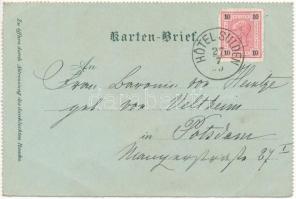 Karten-Brief
10 10
HÔTEL SULDEN
27
7
An
Frau Baronin von Heintze
geb. von Veltheim
in Potsdam
Mangerstraße 27 I
Zu öffnen durch Abtrennung des durchlochten Randes